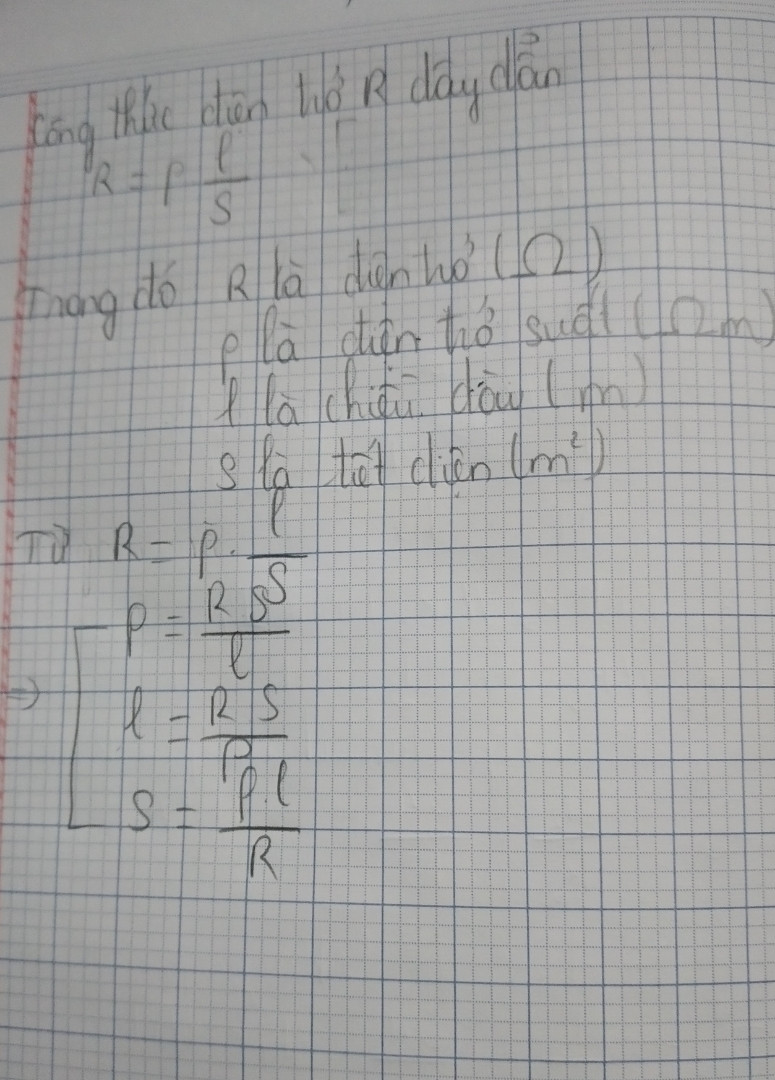 Công thức điện trở R dây dẫn
R = ρ l/S
Trong đó R là điện trở (Ω)
ρ là điện trở suất (Ωm)
l là chiều dài (m)
S là tiết diện (m²)
Từ R = ρ. l/S
ρ = R S/l
⇒ l = R S/ρ
S = ρ.l/R